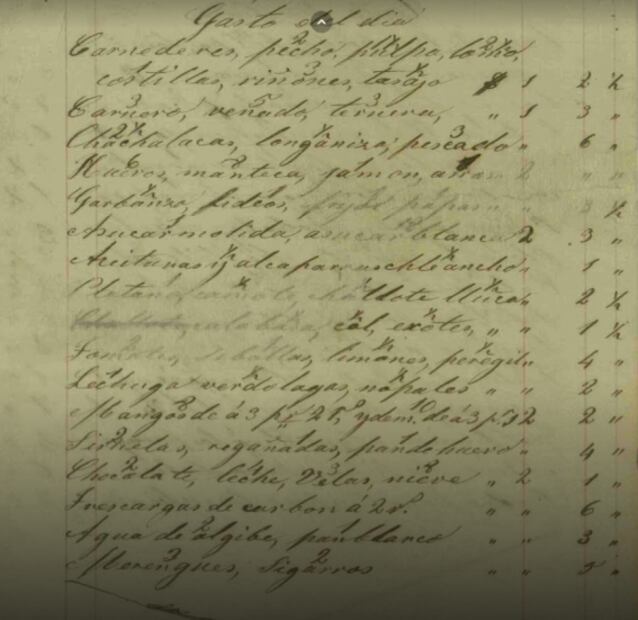 Gasto del dia
Carnederes, pecho, pulpo, lomo,
costillas, riñones, tasajo $ 1 2 ½
Carnero, venado, ternera, " 1 3 "
Chachalacas, longaniza, pescado " 6 "
Huevos, manteca, jamon, 2 " "
Garbanzo, fideos, papas " 3 ½
Azucar molida, azucar blanca 2 3 "
Aceitunas y alcaparras chileancho " 1 "
camote, 2 ½
calabaza, col, exotes, " " 1 ½
Tomates, sebollas, limones, peregil " 4 "
Lechuga verdolagas, nopales " " 2 "
Mangos de á 3 pr 2r, y dem. de á 3 pr 2 2 "
Siruelas, regañadas, pandehuevo " 4 "
Chocolate, leche, Velas, nieve " 2 1 "
Frescargas de carbon á 2r. " " 6 "
Agua de algibe, panblanco " " 3 "
Merengues, Sigarros " " 5 "